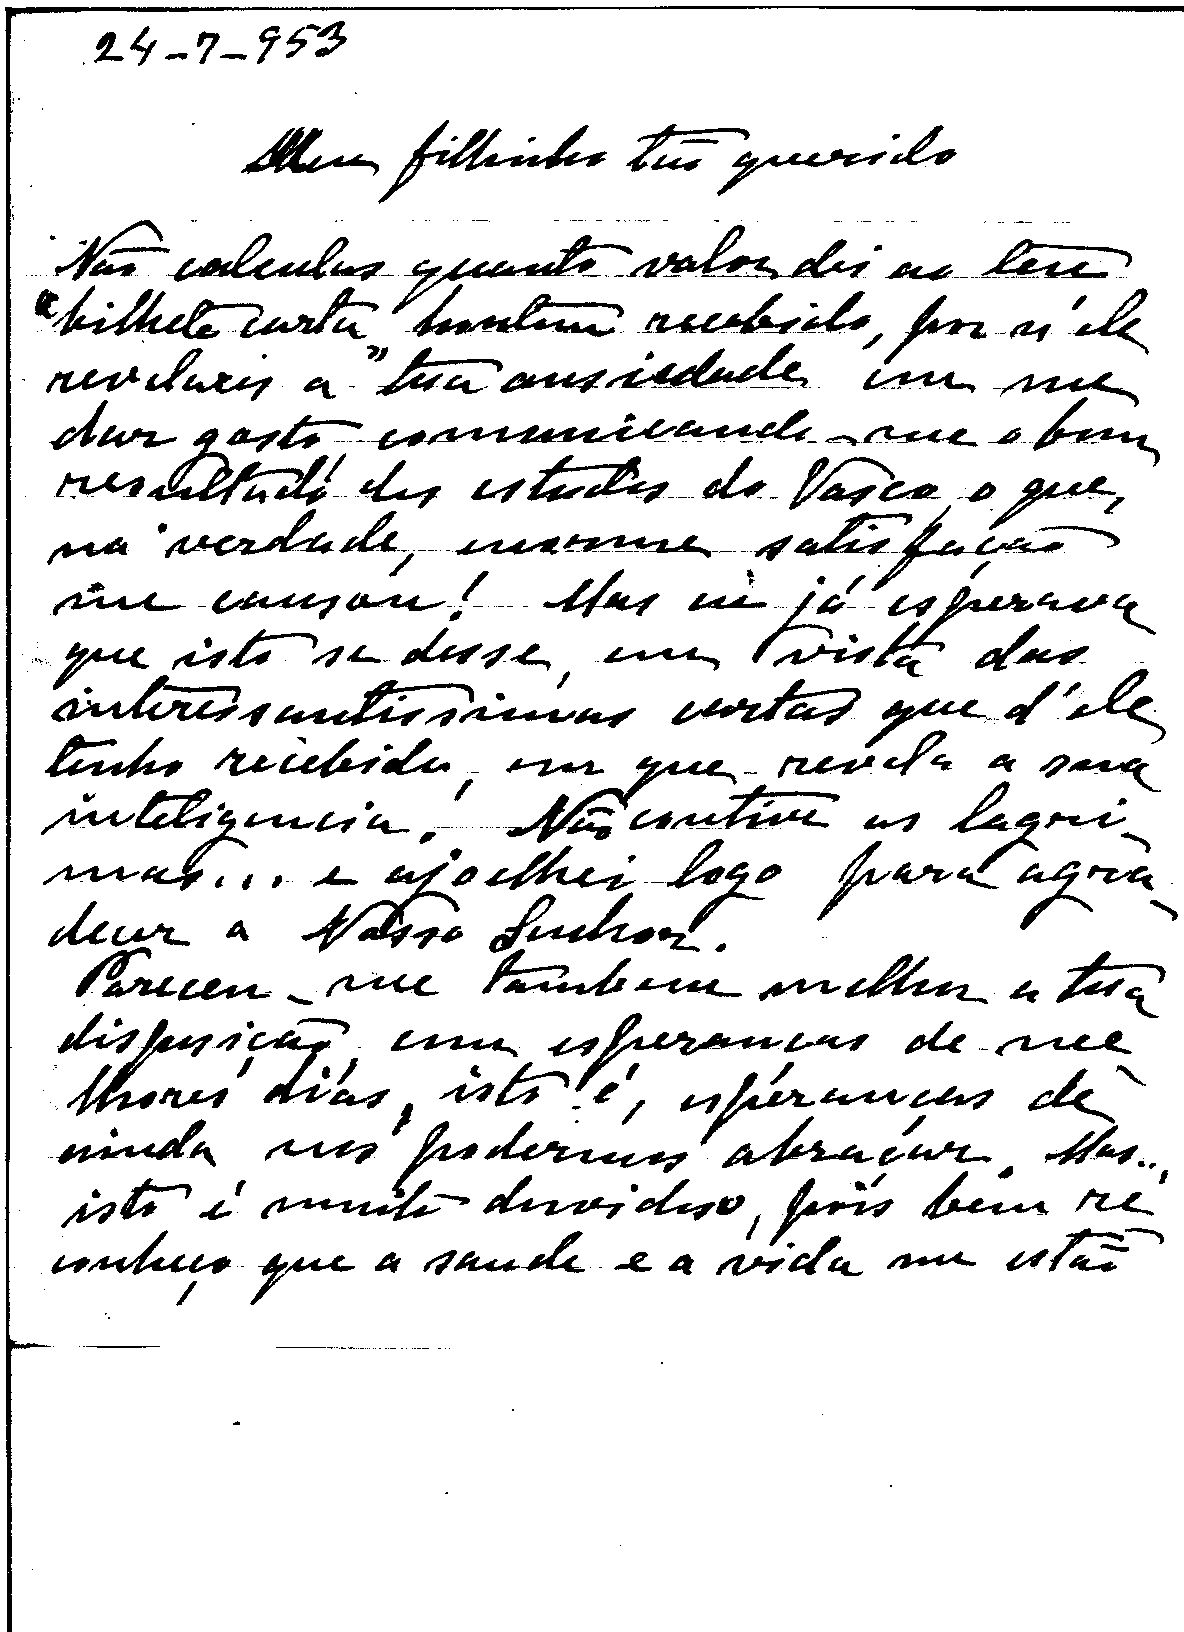 24-7-953
Meu filhinho tão querido
Não calculas quanto valor dei ao teu
"bilhete carta" hontem recebido, por n'ele
revelares a tua ansiedade em me
dar gosto, comunicando-me o bom
resultado dos estudos do Vasco, o que,
na verdade, enorme satisfação
me causou! Mas eu já esperava
que isto se désse, em vista das
interessantissimas cartas que d'ele
tenho recebido, em que revela a sua
inteligencia! Não contive as lagri-
mas... e ajoelhei logo para agra-
decer a Nosso Senhor.
Pareceu-me tambem melhor a tua
disposição, com esperanças de me
lhores dias, isto é, esperanças de
ainda nos podermos abraçar. Mas...
isto é muito duvidoso, pois bem re
conheço que a saude e a vida me estão